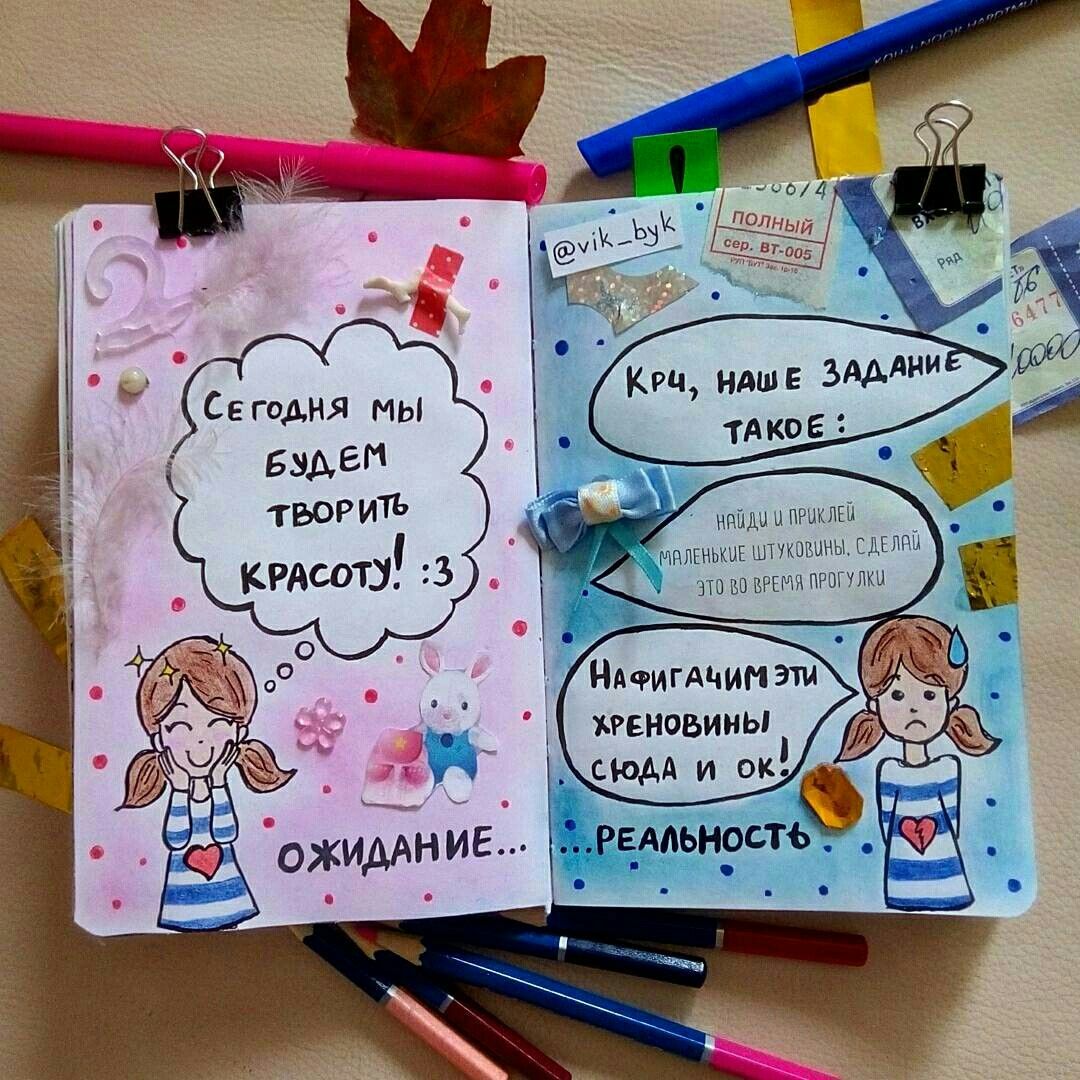 KOH-I-NOOR HARDTMU
@vik_byk
ПОЛНЫЙ
сер. ВТ-005
РЯД
6477
Сегодня мы
будем
творить
красоту! :3
ОЖИДАНИЕ...
Крч, наше задание
такое:
НАЙДИ И ПРИКЛЕЙ
МАЛЕНЬКИЕ ШТУКОВИНЫ. СДЕЛАЙ
ЭТО ВО ВРЕМЯ ПРОГУЛКИ
Нафигачим эти
хреновины
сюда и ок!
...РЕАЛЬНОСТЬ